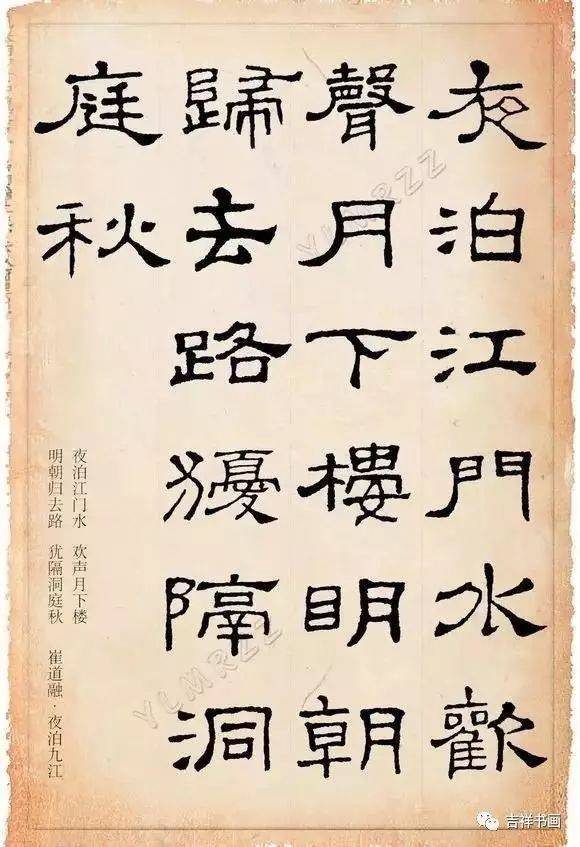 夜泊江門水歡
聲月下樓明朝
歸去路獶隔洞
庭秋
夜泊江门水 欢声月下楼
明朝归去路 犹隔洞庭秋 崔道融·夜泊九江
YLMRZZ
YLMRZZ
吉祥书画